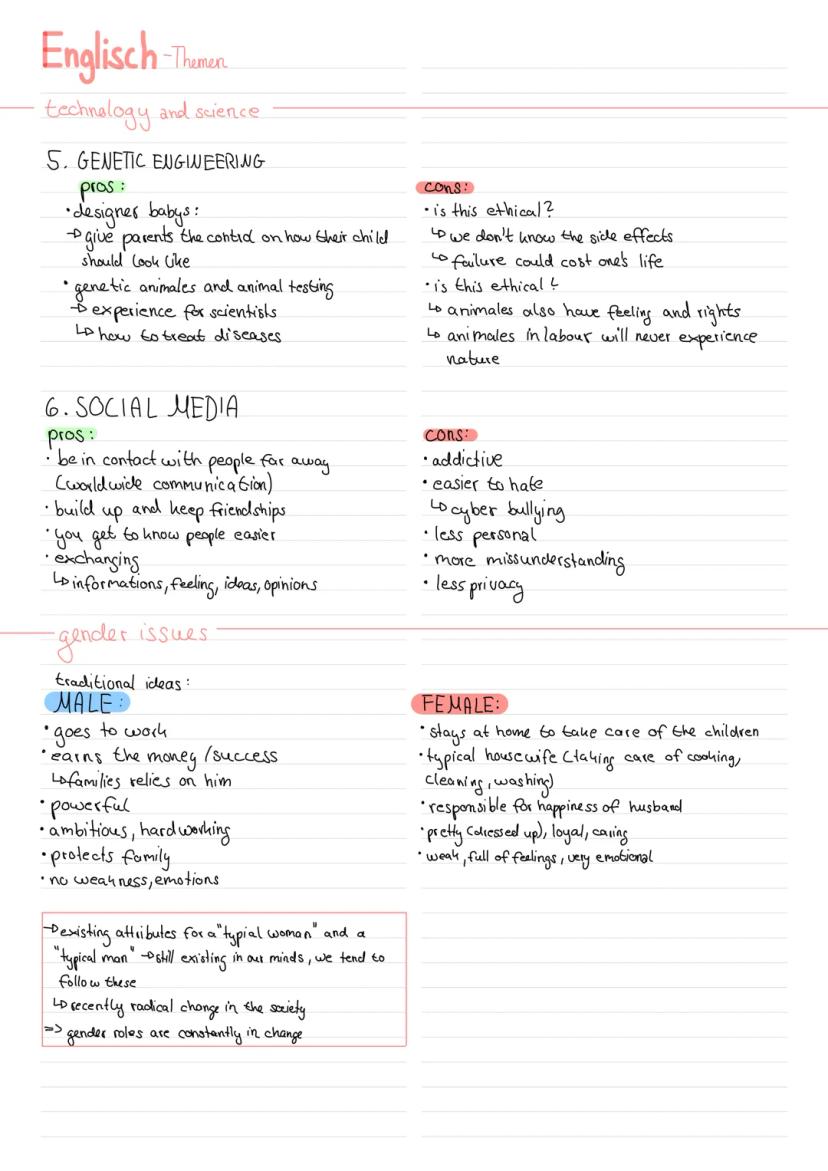 Englisch - Themen
technology and science
5. GENETIC ENGINEERING
pros:
• designer babys:
→ give parents the control on how their child
should look like
• genetic animales and animal testing
→ experience for scientists
↳ how to treat diseases
cons:
• is this ethical?
↳ we don't know the side effects
↳ failure could cost one's life
• is this ethical?
↳ animales also have feeling and rights
↳ animales in labour will never experience
nature
6. SOCIAL MEDIA
pros:
• be in contact with people far away
(worldwide communication)
• build up and keep friendships
• you get to know people easier
• exchanging
↳ informations, feeling, ideas, opinions
cons:
• addictive
• easier to hate
↳ cyber bullying
• less personal
• more missunderstanding
• less privacy
gender issues
traditional ideas:
MALE:
• goes to work
• earns the money / success
↳ families relies on him
• powerful
• ambitious, hard working
• protects family
• no weakness, emotions
FEMALE:
• stays at home to take care of the children
• typical housewife (taking care of cooking,
cleaning, washing)
• responsible for happiness of husband
• pretty (dressed up), loyal, caring
• weak, full of feelings, very emotional
→ existing attributes for a "typial woman" and a
"typical man" → still existing in our minds, we tend to
follow these
↳ recently radical change in the society
=> gender roles are constantly in change